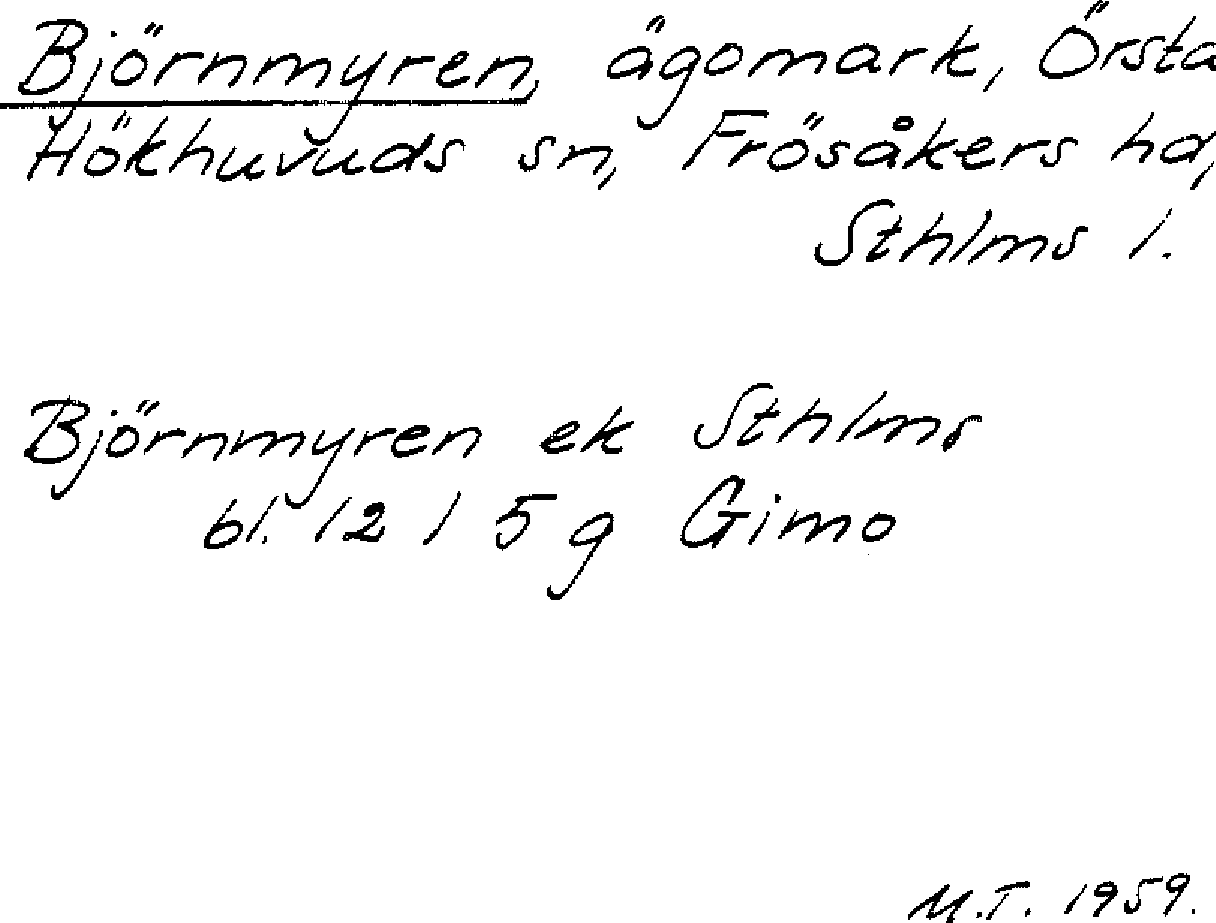 Björnmyren, ägomark, Örsta
Hökhuvuds sn, Frösåkers hd,
Sthlms l.
Björnmyren ek Sthlms
bl. 12 I 5 g Gimo
M.T. 1959.